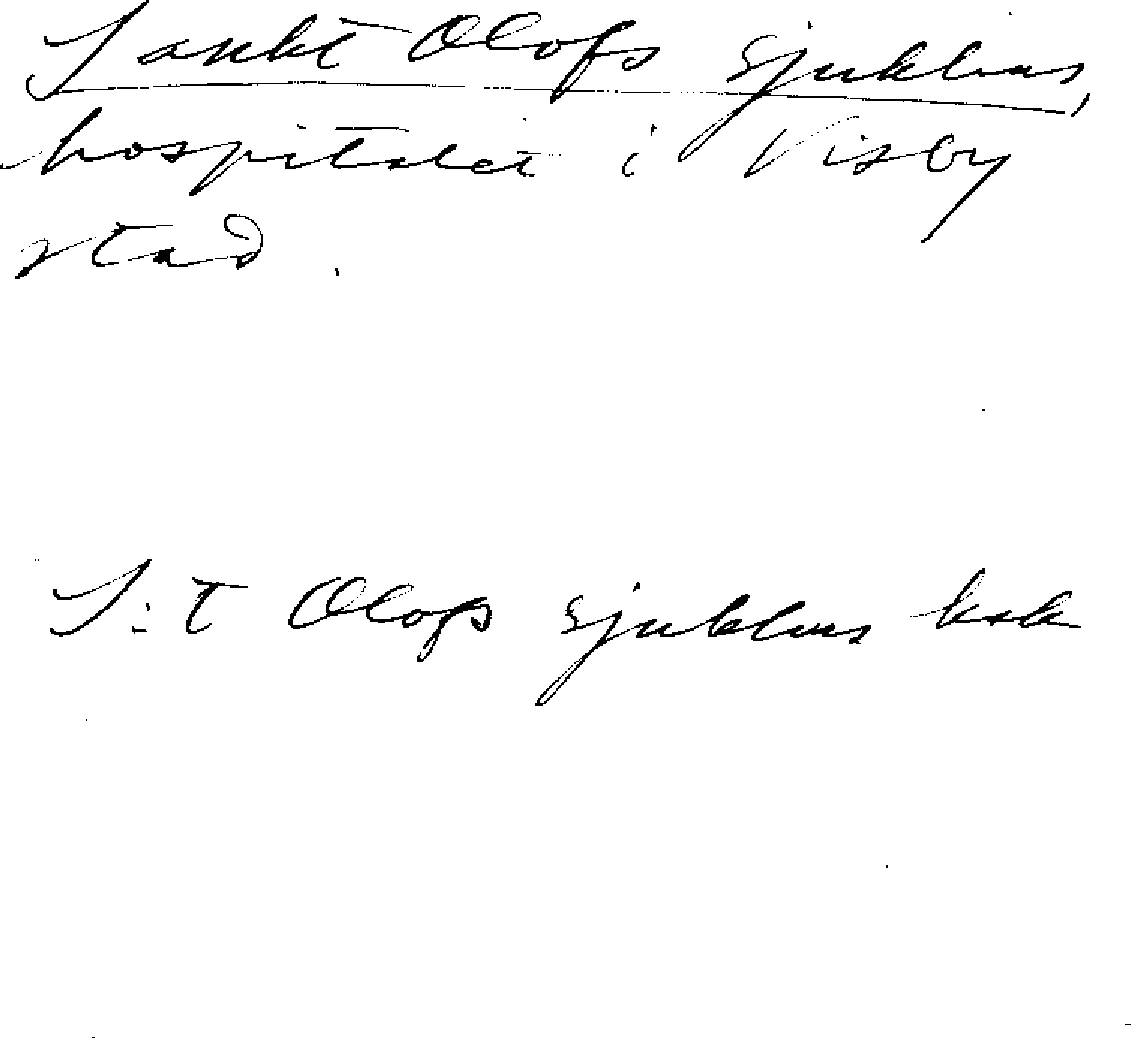 Sankt Olofs sjukhus,
hospitalet i Visby
stad.
S:t Olofs sjukhus kak